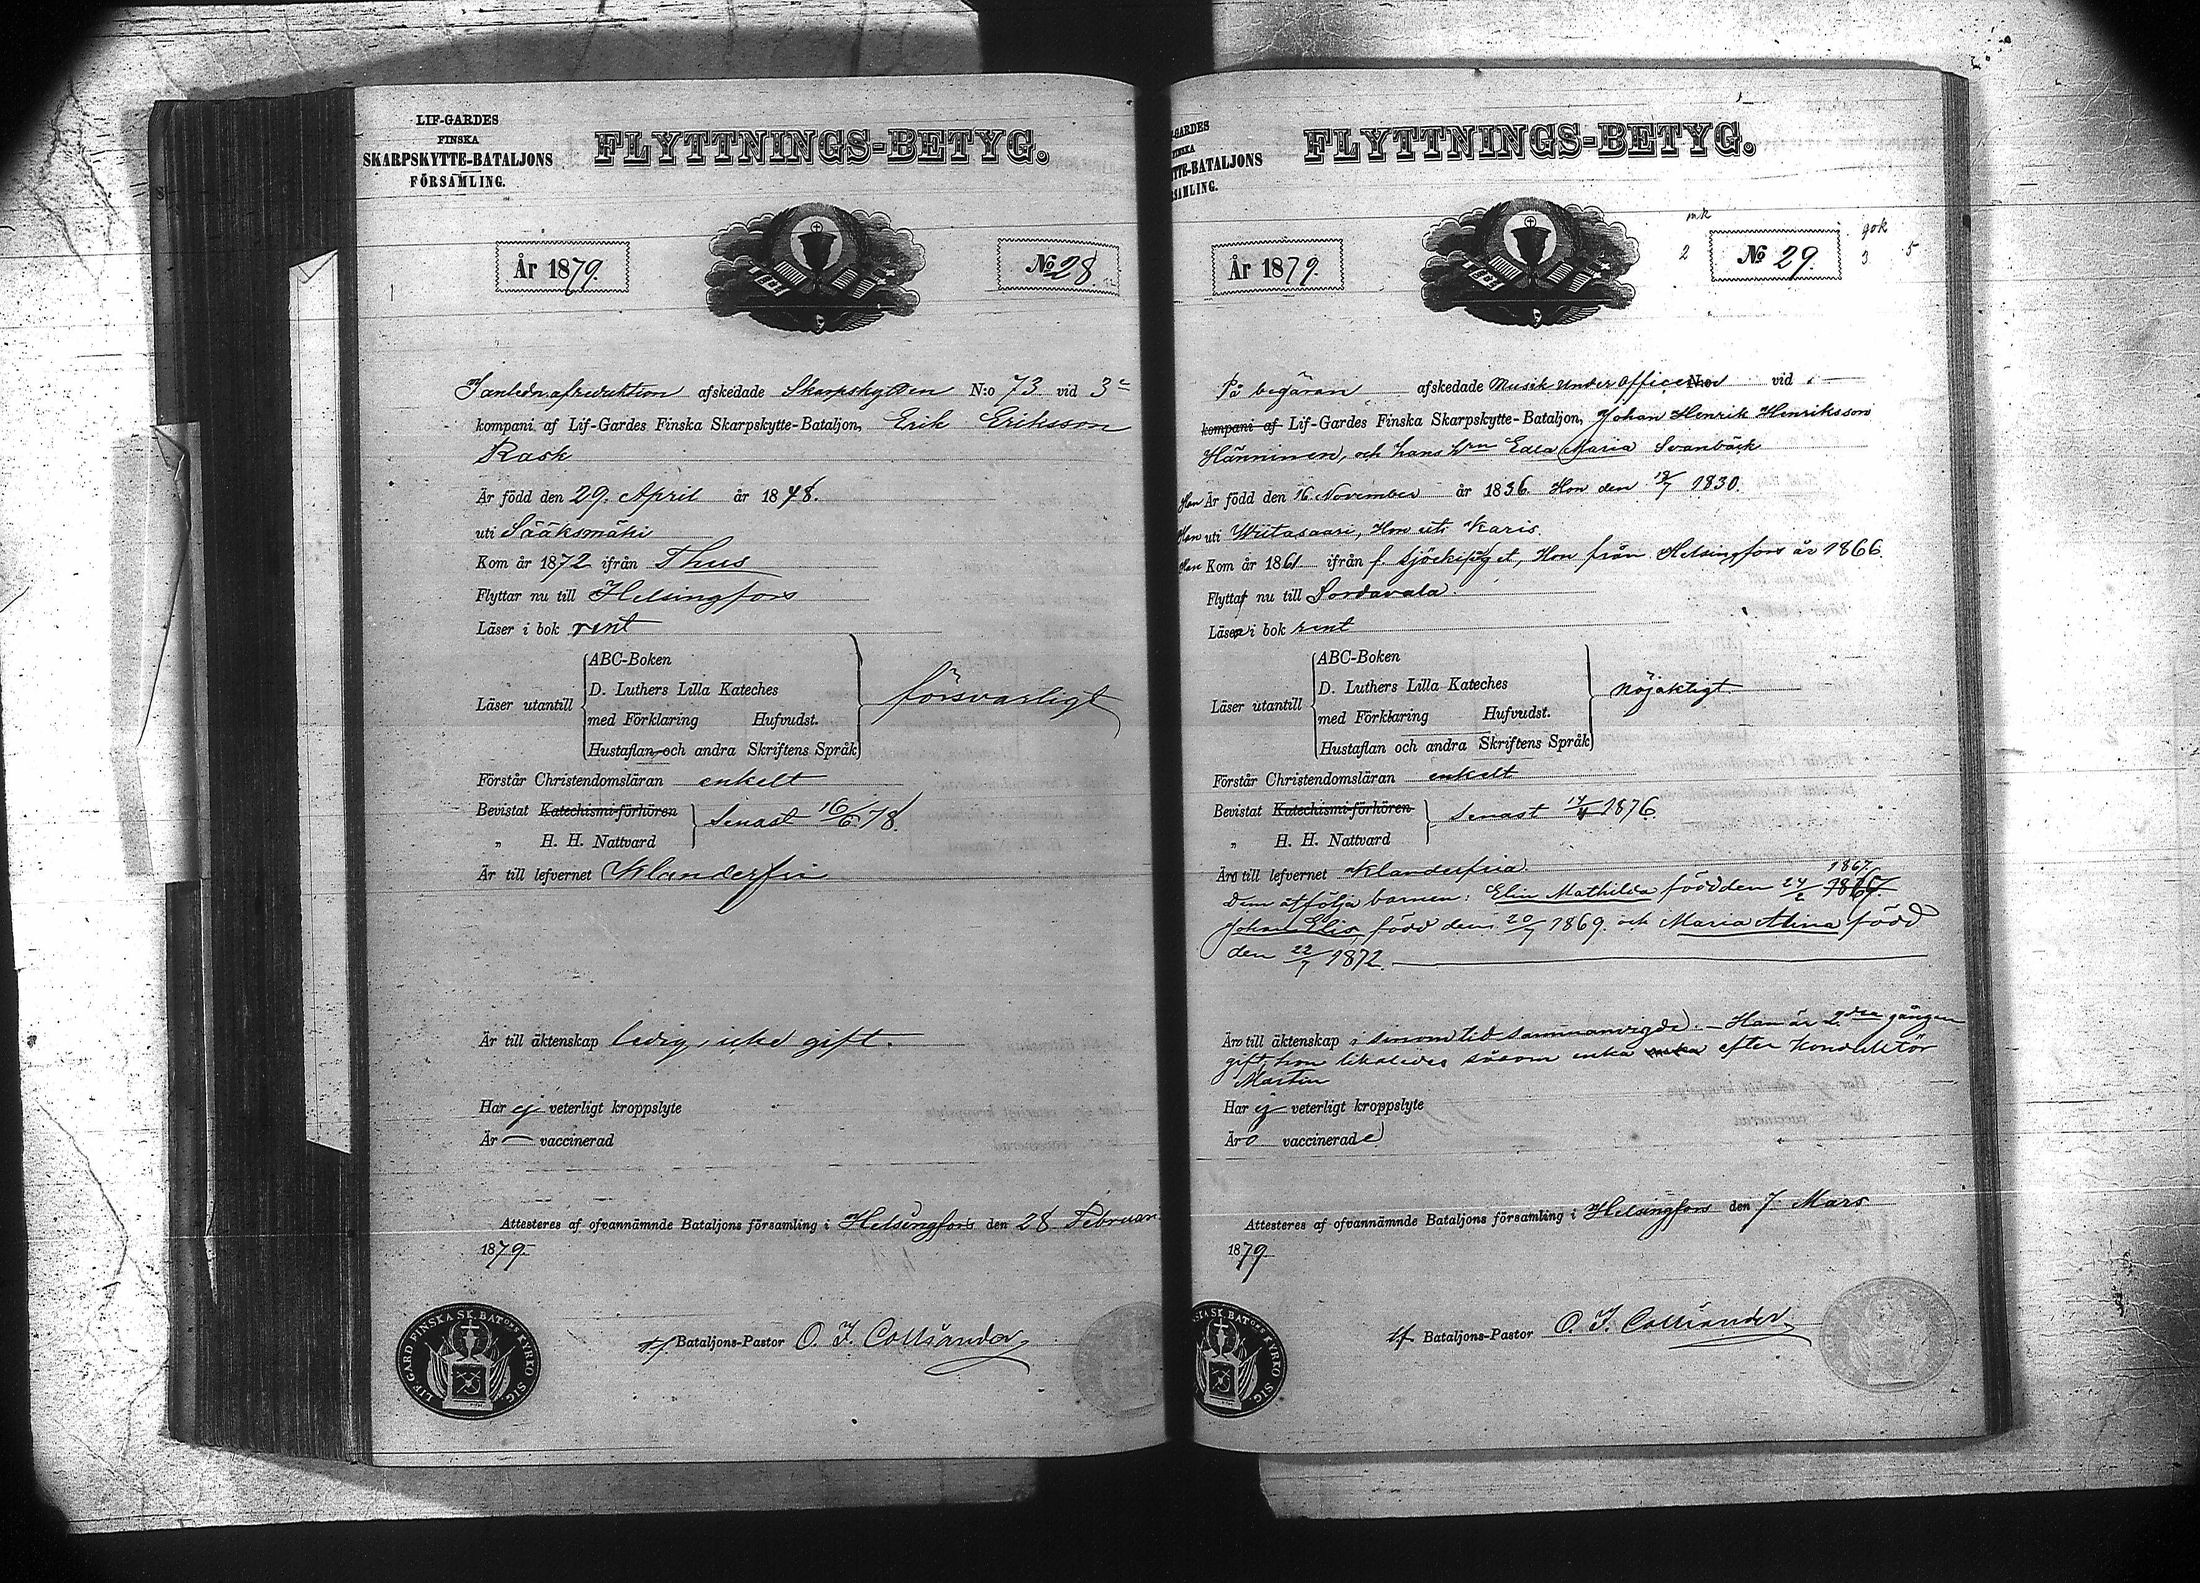 LIF-GARDES
FINSKA
SKARPSKYTTE-BATALJONS
FÖRSAMLING.
FLYTTNINGS-BETYG.
År 1879.
No 28.
I anledn. af reduktion afskedade Skarpskytten N:o 73 vid 3e
kompani af Lif-Gardes Finska Skarpskytte-Bataljon, Erik Eriksson
Rask
Är född den 29. April år 1848.
uti Sääksmäki
Kom år 1872 ifrån Thus
Flyttar nu till Helsingfors
Läser i bok rent
Läser utantill
ABC-Boken
D. Luthers Lilla Kateches
med Förklaring Hufvudst.
Hustaflan och andra Skriftens Språk
försvarligt
Förstår Christendomsläran enkelt
Bevistat Katechismi-förhören
„ H. H. Nattvard
senast 16/6 78.
Är till lefvernet Klanderfri
Är till äktenskap ledig, icke gift.
Har ej veterligt kroppslyte
Är — vaccinerad
Attesteres af ofvannämnde Bataljons församling i Helsingfors den 28 Februari
1879.
Bataljons-Pastor O. I. Colliander
LIF-GARD FINSKA SK. BAT:ONS KYRKO SIG.
GARDES
FINSKA
TTE-BATALJONS
SAMLING.
FLYTTNINGS-BETYG.
År 1879.
mk
2
No 29.
3 5
På begäran afskedade Musik Under Officeren N:o vid —
kompani af Lif-Gardes Finska Skarpskytte-Bataljon, Johan Henrik Henriksson
Hänninen, och hans h:ru Edla Maria Svanbäck
Han Är född den 16 November år 1836. Hon den /7 1830.
Han uti Wiitasaari, Hon uti Karis
Han Kom år 1861 ifrån f. sjöekipaget, Hon från Helsingfors år 1866.
Flytta nu till Sordavala.
Läsa i bok rent
Läser utantill
ABC-Boken
D. Luthers Lilla Kateches
med Förklaring Hufvudst.
Hustaflan och andra Skriftens Språk
nöjaktigt
Förstår Christendomsläran enkelt
Bevistat Katechismi-förhören
„ H. H. Nattvard
senast 1876.
Äro till lefvernet Klanderfria. 1867
Dem åtfölja barnen: Elin Mathilda född den 24/2
Johan Elis, född den 20/7 1869. och Maria Alina född
den 22/7 1872.
Äro till äktenskap i sinom tid sammanvigde. — Han är 2dra gången
gift, hon likaledes såsom enka efter Konduktör
Martin
Har ej veterligt kroppslyte
Äro vaccinerade
Attesteres af ofvannämnde Bataljons församling i Helsingfors den 7 Mars
1879
Bataljons-Pastor O. I. Colliander
SKA SK. BAT:ONS KYRKO SIG.